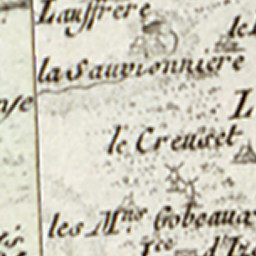 Lauffrere
le
la Sauvionniere
L
le Creuset
les M.ns Gobeaux
d'Iz